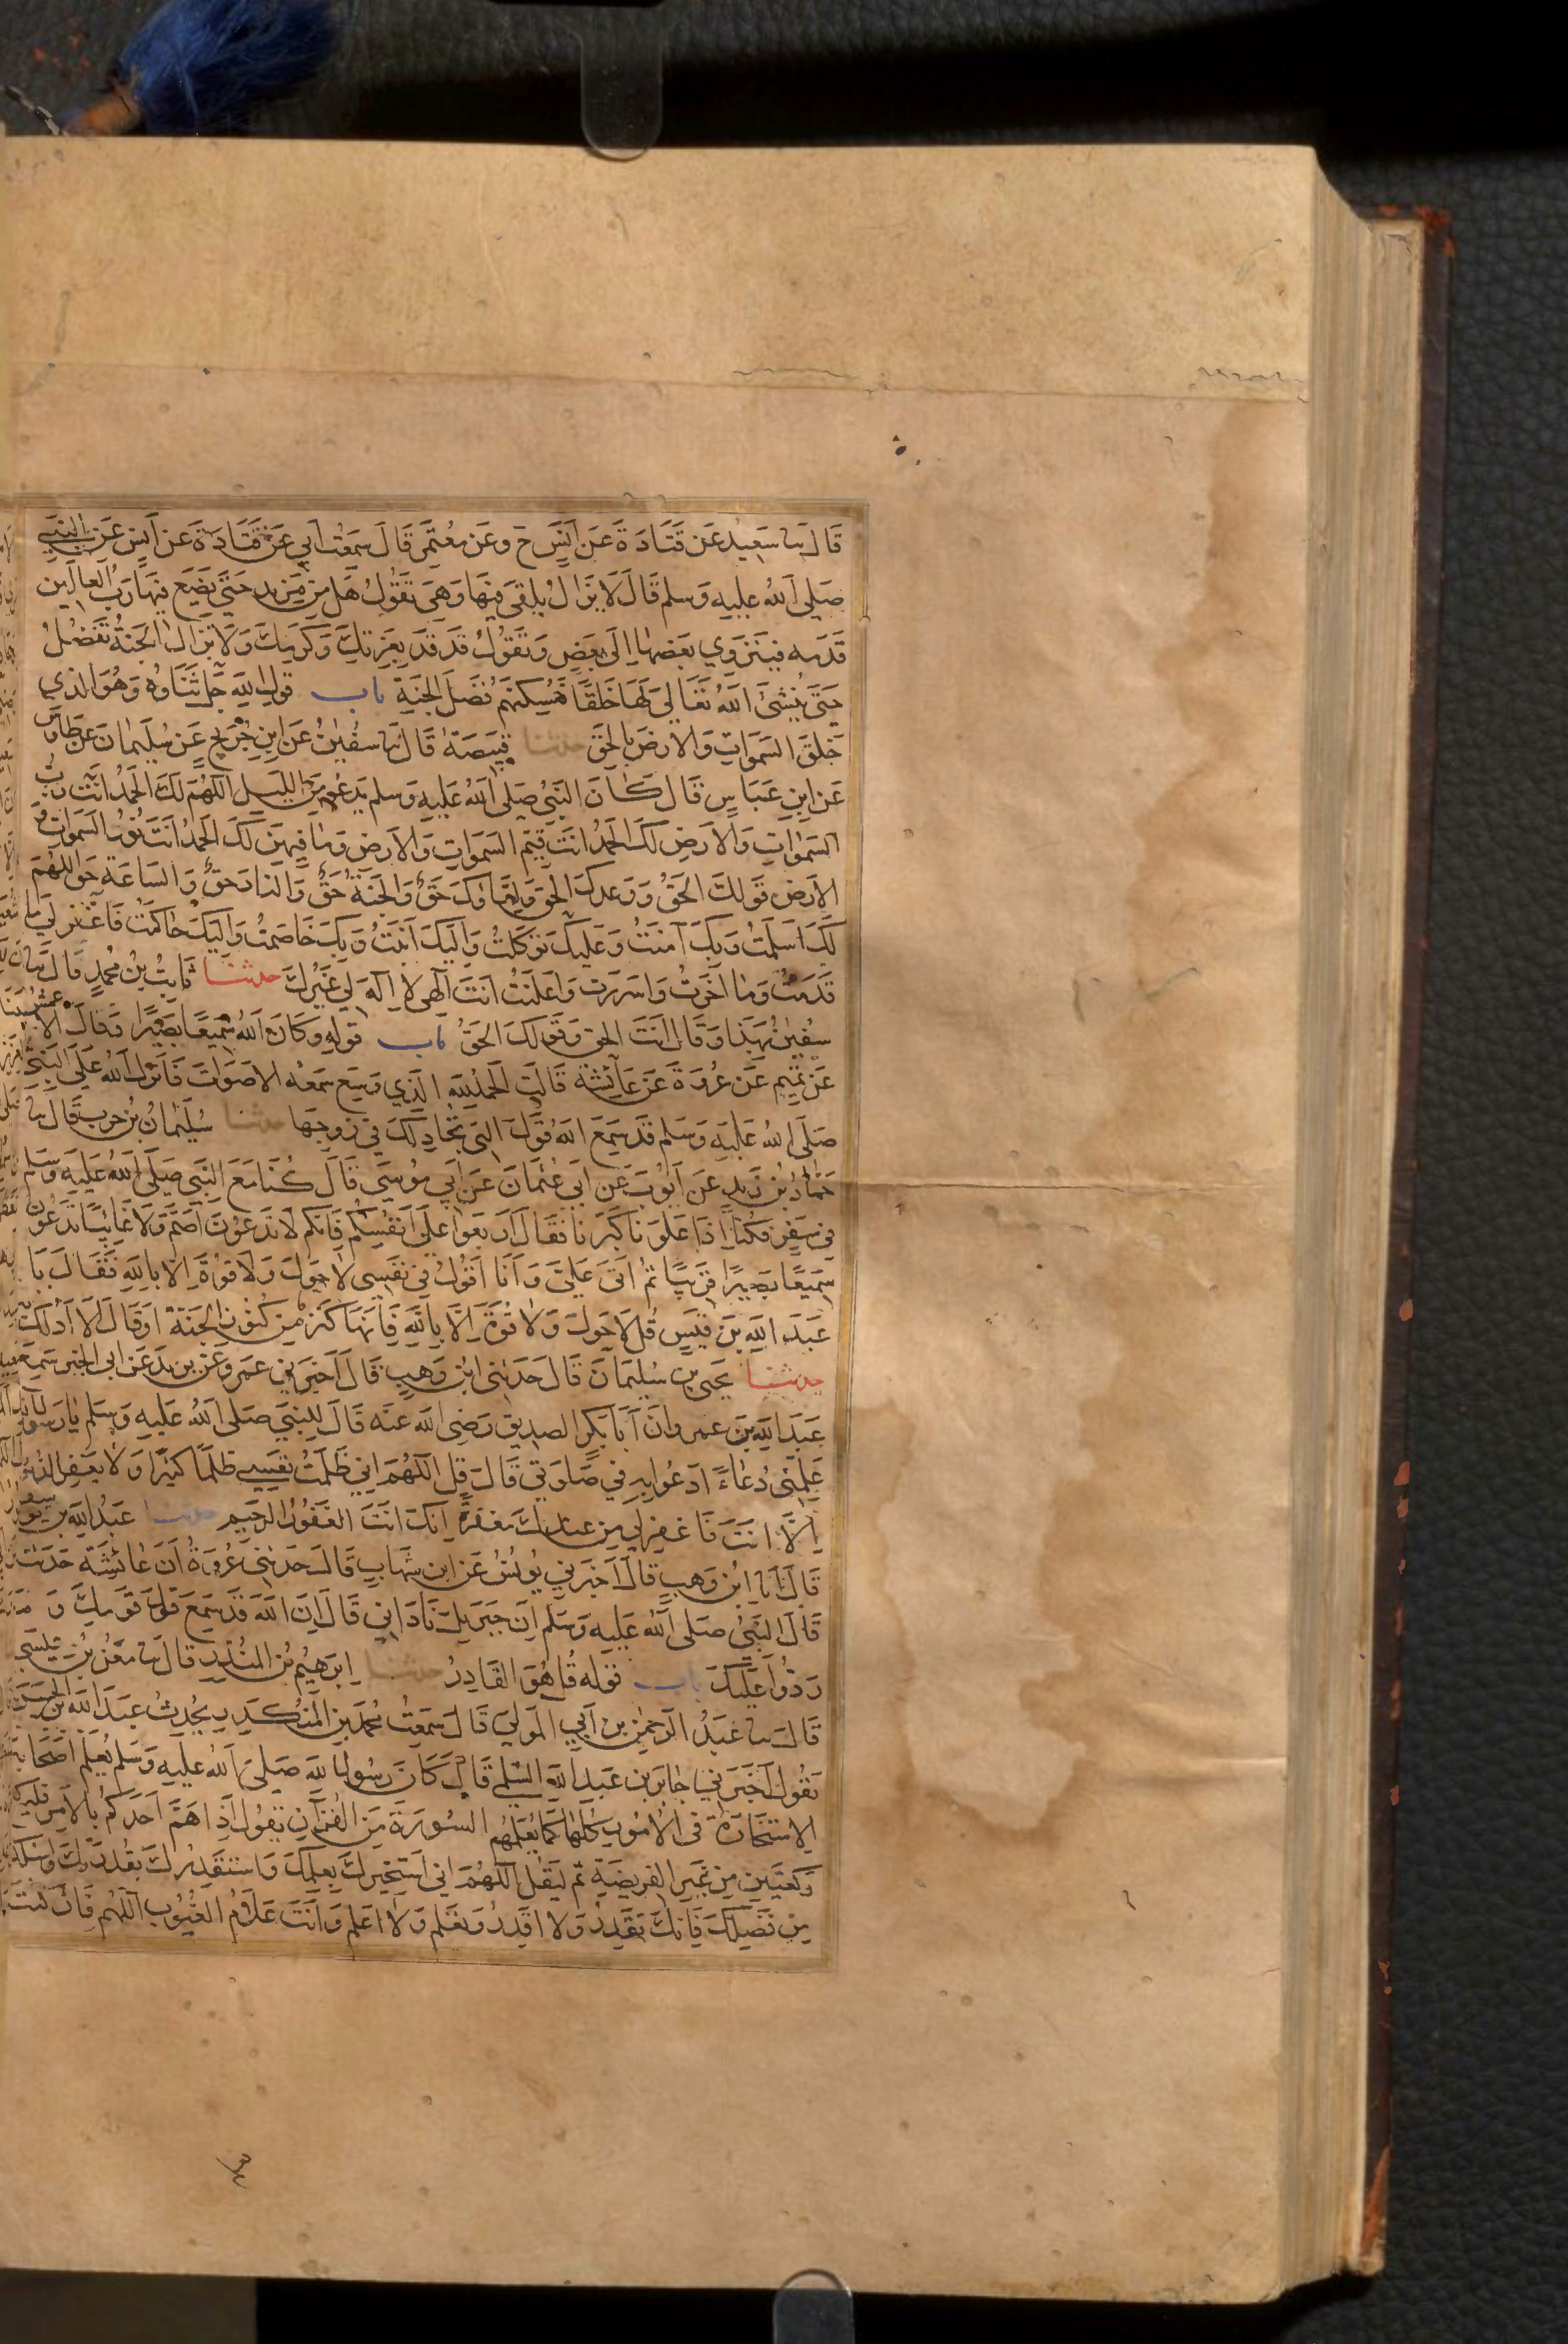 قَالَ ثنا سَعِيدٌ عَن قَتَادَةَ عَن أَنَسٍ ح وعَن مُعْتَمِرٍ قَالَ سَمِعْتُ أَبِي عَن قَتَادَةَ عَن أَنَسٍ عَنِ النَّبِيِّ
صَلَى اللهُ عليهِ وَسلم قَالَ لَا يَزَالُ يُلْقَى فِيهَا وَهِيَ تَقُولُ هَل مِن مَزِيدٍ حَتَّى يَضَعَ فِيهَا رَبُّ العالمين
قَدَمه فَيَنْزَوِي بَعضهَا إِلَى بَعْضٍ وَتَقُولُ قَد قَد بِعِزتِكَ وَكَرَمِكَ وَلَا تزالُ الجَنةُ تَفْضُلُ
حَتَى يُنْشِئَ اللهُ تَعَالى لَهَا خَلقًا فَيُسكِنهُم فَضلَ الجَنةِ باب قول اللهِ جَلَّ ثَنَاؤهُ وَهُوَ الذي
خَلَقَ السَموَاتِ وَالأرضَ بالحَقِّ حدثنا قَبِيصَة قَالَ ثنا سُفيٰنُ عَنِ ابنِ جُرَيجٍ عَن سُلَيمانَ عَن طَاوُسٍ
عَن ابنِ عَبَاسٍ قَالَ كَانَ النَبِيُّ صَلى اللهُ عَليهِ وَسلم يَدعُو مِنَ الليلِ اللهُمَ لَكَ الحَمدُ أنتَ رَبُّ
السَمواتِ وَالأرَضِ لَكَ الحَمدُ أنتَ قَيِّمُ السَمَوَاتِ وَالأرَضِ وَمَا فِيهِن لَكَ الحَمدُ أنتَ نُورُ السَمواتِ وَ
الأرَضِ قَولكَ الحَقُّ وَوَعدكَ الحَق وَلِقَاؤكَ حَقٌ وَالجَنةُ حَقٌّ وَالنارُ حَقٌ وَالسَاعَة حَقٌّ اللهُمَ
لَكَ أسلَمتُ وَبِكَ آمنتُ وَعَليكَ تَوَكلتُ وَإليكَ أنَبْتُ وَبِكَ خَاصَمتُ وَإليكَ حَاكَمتُ فَاغفِر لي مَا
قَدَمتُ وَمَا أخَّرتُ وَأسرَرت وَأعلَنتُ أنتَ إلٰهِي لَا إِلهَ لِي غَيْرُكَ حدثنا ثَابِتُ بن مُحمدٍ قالَ ثنا
سُفيٰنُ بهَذَا وَقَالَ أنتَ الحَق وَقَولكَ الحَقُّ باب قولهِ وَكَانَ اللهُ سَمِيعًا بَصِيرًا وَقَالَ الأعمشُ
عَن تَمِيمٍ عَن عُروَةَ عَن عَائِشَةَ قَالَت الحَمدُ للهِ الذِي وَسِعَ سَمعُه الأصَوَاتَ فَأنزَلَ اللهُ عَلَى النَبِي
صَلَى اللهُ عَليهِ وَسَلم قَد سَمِعَ اللهُ قَولَ التي تجَادِلكَ فِي زَوجِهَا حدثنا سُلَيمانُ بن حربٍ قَالَ ثنا
حَمادُ بن زَيدٍ عَن أيُوبَ عَن أبي عُثمَانَ عَن أبِي مُوسَى قَالَ كُنا مَعَ النَبِي صَلَى اللهُ عَليهِ وَسَلم
في سَفَرٍ فَكنا إذَا عَلَونَا كَبَّرنَا فَقَالَ اربَعوا عَلَى أنفُسِكُم فَإنكم لَا تَدعُونَ أصَمَّ وَلَا غَائِبًا تَدعُون
سَمِيعًا بَصِيرًا قَرِيبًا ثم أتَى عَلَيَّ وَأنَا أقُولُ في نَفسِي لَا حَولَ وَلَا قوةَ إلا بِاللهِ فَقَالَ يَا
عَبدَ اللهِ بنَ قَيسٍ قُل لَا حَولَ وَلَا قُوةَ إلَّا بِاللهِ فَإنهَا كَنز مِن كنُوزِ الجَنةِ أوقَالَ ألَا أدُلكَ بِهِ
حدثنا يَحيى بن سُلَيمَانَ قَالَ حَدثَنِي ابنُ وَهبٍ قَالَ أخبَرَنِي عَمرو عَن يزيدَ عَن أبي الخَيرِ سَمِعَ
عَبدَ اللهِ بنَ عمرو أنَّ أبَا بَكرٍ الصديقِ رَضِيَ اللهُ عنه قَالَ لِلنبِيِّ صَلى اللهُ عَليهِ وَسَلم يَا رَسُولَ الله
عَلِّمنِي دُعَاءً أدعُو بِهِ فِي صَلَوتِي قَالَ قُلِ اللهُمَ إنِي ظَلَمتُ نَفسِي ظُلمًا كثِيرًا وَلَا يَغفِرُ الذنُوبَ
إلَّا أنتَ فَاغفِر لِي مِن عندِكَ مَغفِرَةً إنكَ أنتَ الغَفُورُ الرَحِيم حدثنا عَبدُ اللهِ بن يوسُف
قَالَ أنا ابن وَهبٍ قالَ أخبَرنِي يُونُسُ عَن ابنِ شِهَابٍ قَالَ حَدثنِي عُروَةُ أنَ عَائِشَةَ حَدثَته
قَالَ النَبِيُ صَلَى اللهُ عَليهِ وَسَلم إنَ جِبرِيلَ نَادَانِي قَالَ إنَ اللهَ قَد سَمِعَ قَولَ قَومِكَ وَمَا
رَدُّوا عَليكَ باب قوله قُل هُوَ القَادِرُ حدثنا إبرَهيمُ بن المنذِرِ قالَ ثنا مَعنُ بنُ عِيسَى
قَالَ ثنا عَبدُ الرَحمٰنِ بن أبِي المَوَالِي قَالَ سَمِعتُ مُحمدَ بنَ المُنكَدِرِ يُحدثُ عَبدَ اللهِ بنَ الحَسَن
يَقُولُ أخبَرَنِي جَابرُ بن عَبدِ اللهِ السَلمِي قَالَ كَانَ رَسُولُ اللهِ صَلَى اللهُ عليهِ وَسَلم يُعَلِّم أصحَابَهُ
الاستخَارَةَ فِي الأمُورِ كُلهَا كمَا يُعَلِّمُهم السُورَةَ مِنَ القُرآنِ يَقُولُ إذَا هَمَّ أحَدُكُم بِالأمرِ فليركع
رَكعَتَينِ مِن غَيرِ الفَرِيضَةِ ثم ليَقُل اللهُمَ إني أستخِيرُكَ بِعِلمِكَ وَأستَقدِرُكَ بِقُدرَتِكَ وَأسألكَ
مِن فَضلِكَ فَإنكَ تَقدِرُ وَلَا أقدِرُ وَتَعلَم وَلَا أعلَم وَأنتَ عَلَامُ الغُيُوبِ اللهُم فَإن كنتَ